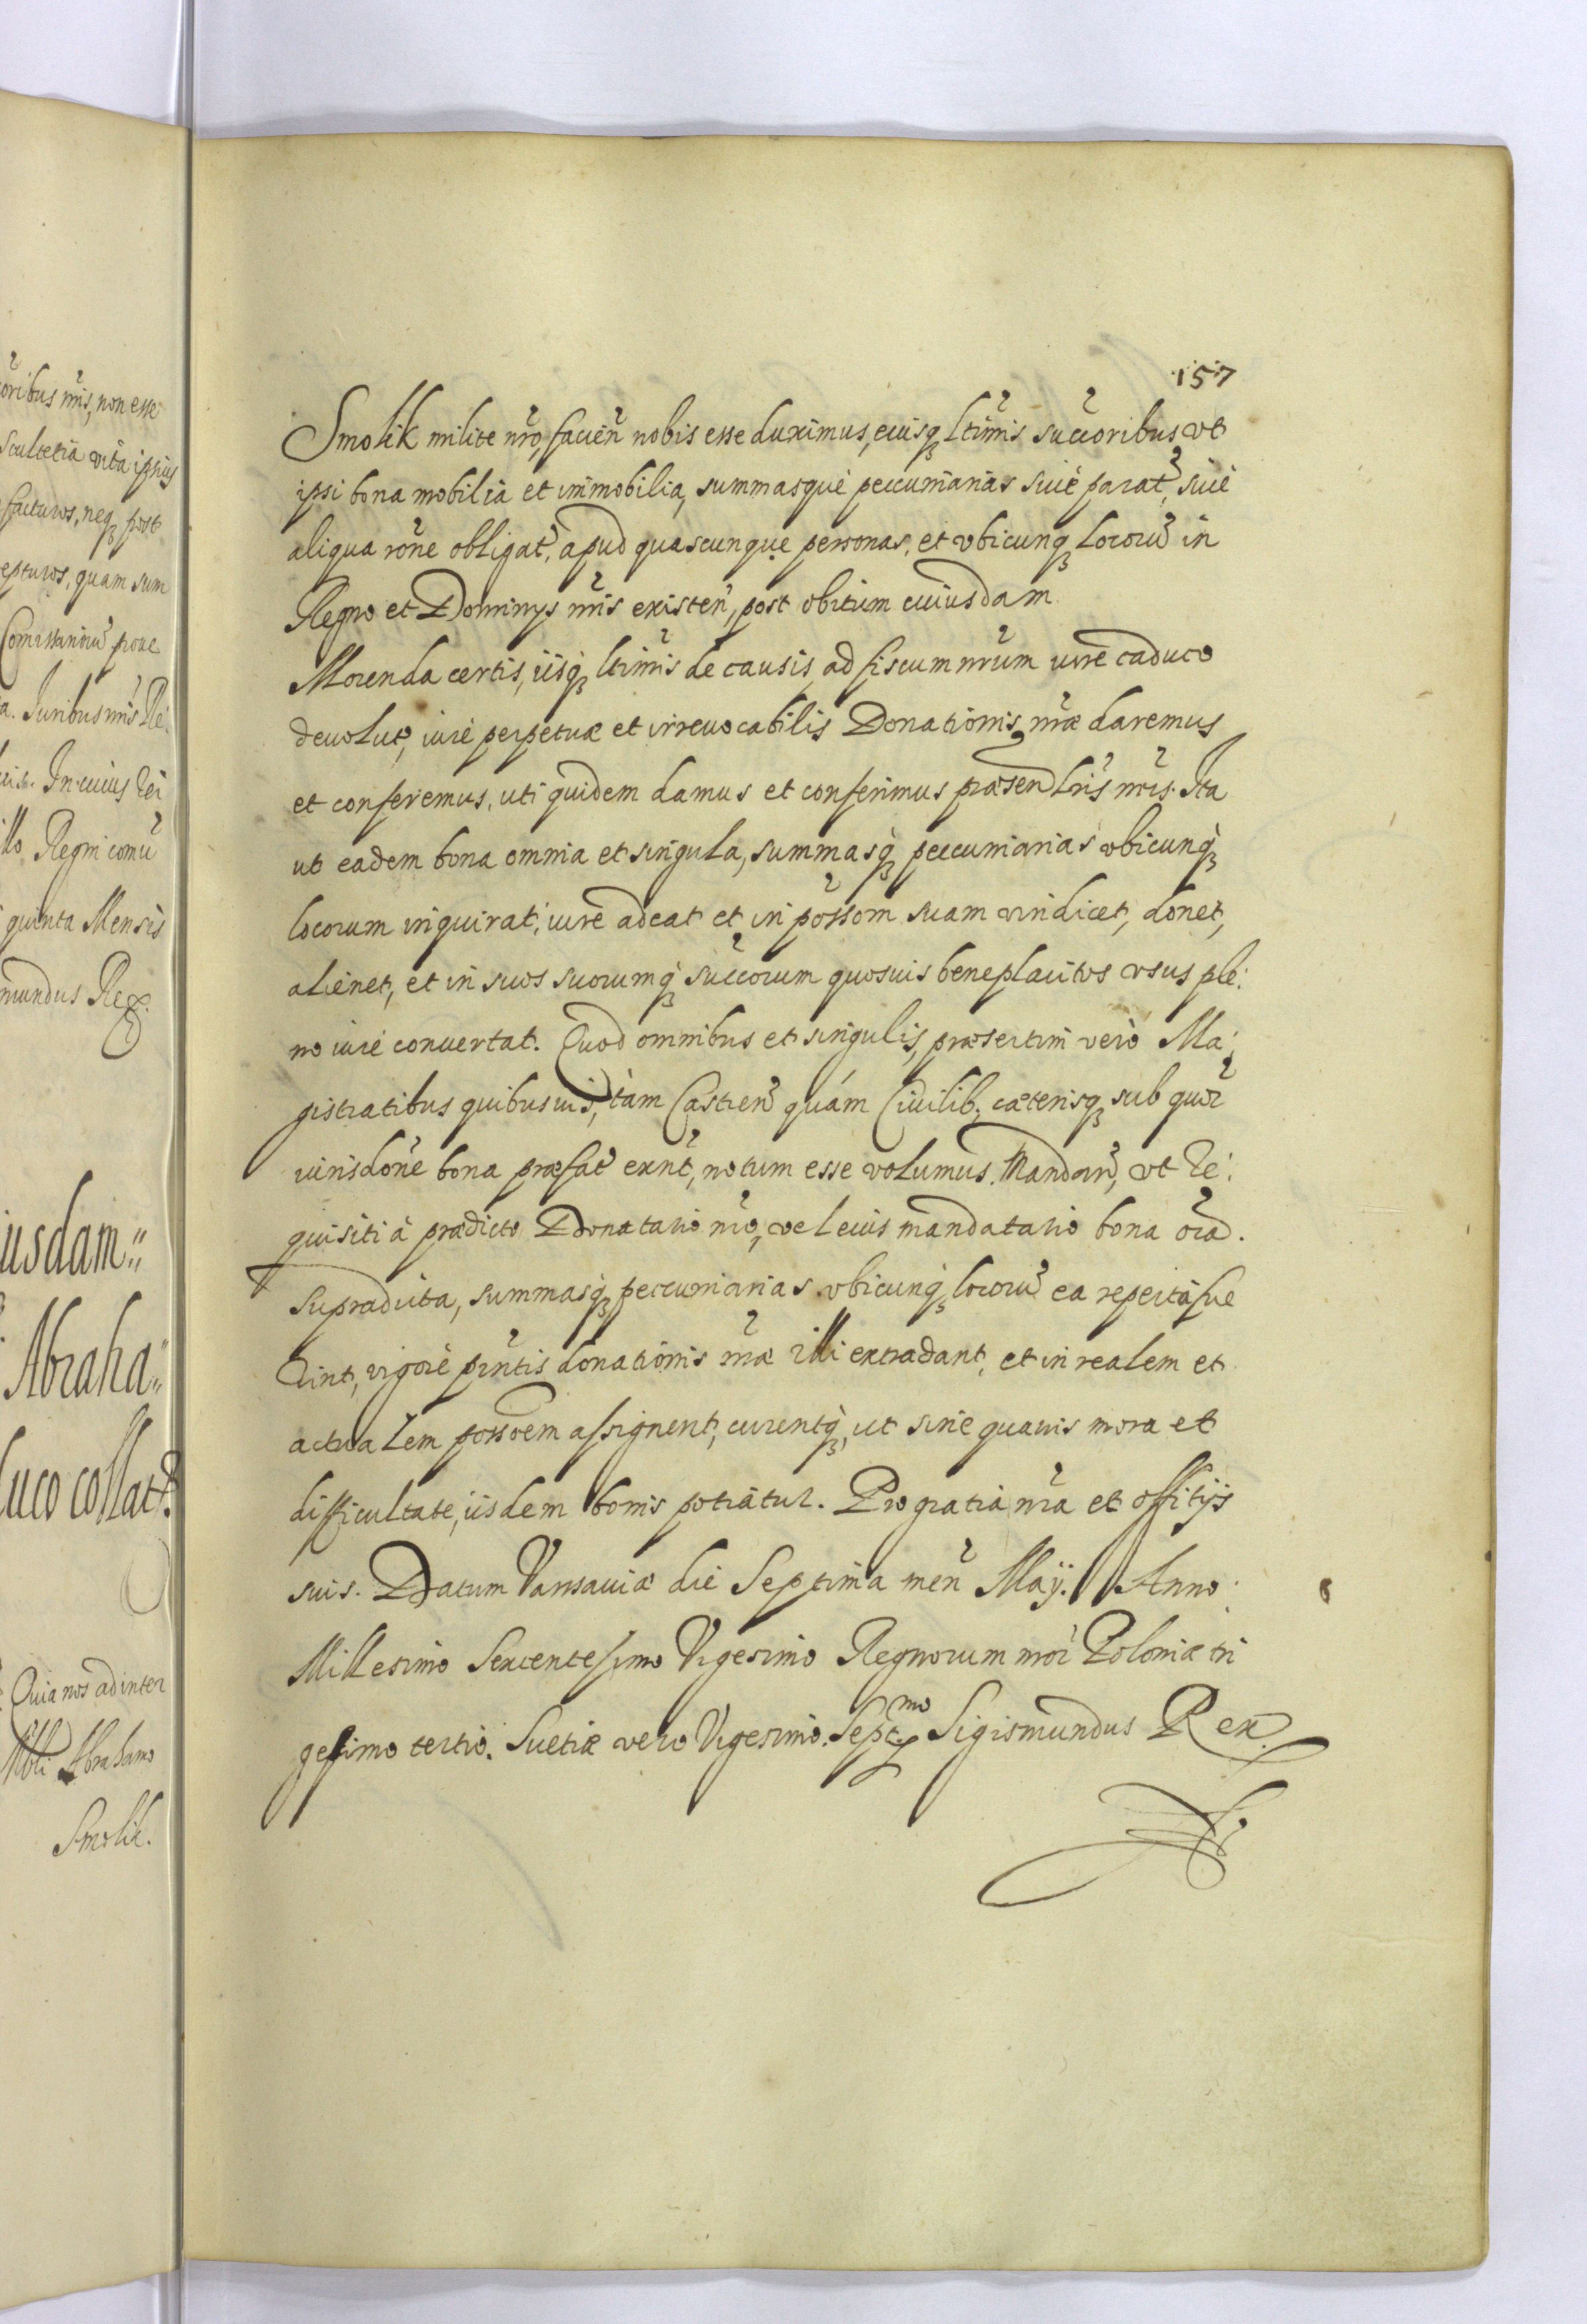 oribus nris, non esse
Scultetia vita ipsius
facturos, neq post
epturos, quam sum
Comissariorũ prove
a. Juribus nris Re:
In cuius rei
illo Regni comu
quinta Mensis
mundus Rex.
iusdam::
Abraha::
duco collatr.
Quia nos ad inter
Nbli Abrahamo
Smolik.
157
Smolik milite nrõ, facien̄ nobis esse duximus, euisq̨ ltimis succoribus, vt
ipsi bona mobilia et immobilia, summasque peccuniarias siue parat, siue
aliqua rõne obligat, apud quascunque personas, et vbicunq̨ locorũ in
Regno et Dominys nris existeñ, post obitum cuiusdam
Morenda certis, iisq̨ ltimis de causis, ad fiscum nrum iure caduco
deuolut, iure perpetuæ et irreuocabilis Donationis nræ daremus
et conferemus, uti quidem damus et conferimus præsen lris nris. Ita
ut eadem bona omnia et singula, summasq̨ peccuniarias vbicunq̨
locorum inquirat, iure adeat et in possom suam vindicet, donet,
alienet, et in suos suorumq̨ succorum quosuis beneplacitos vsus ple:
no iure conuertat. Quod omnibus et singulis, præsertim vero Ma:
gistratibus quibusuis, tàm Castreñ quám Ciuilib, cæterisq̨ sub quor̃
iurisdone bona præfat exnt, notum esse volumus. Mandan̄, vt re:
quisiti à prædicto Donatario nro, vel eius mandatario bona oia.
supradicta, summasq̨ peccuniarias vbicunq̨ locorũ ea reperta fue
rint, vigore pntis donationis nræ illi extradant, et in realem et
actualem possoem assignent, curentq̨, ut sine quauis mora et
difficultate, iisdem bonis potiatur. Pro gratia nra et offitijs
suis. Datum Varsauiæ die Septima men̄ Maij. Anno
Millesimo Sexcentesimo Vigesimo Regnorum nror Poloniæ tri
gesimo tertio. Suetiæ vero Vigesimo. Septmo Sigismundus Rex.